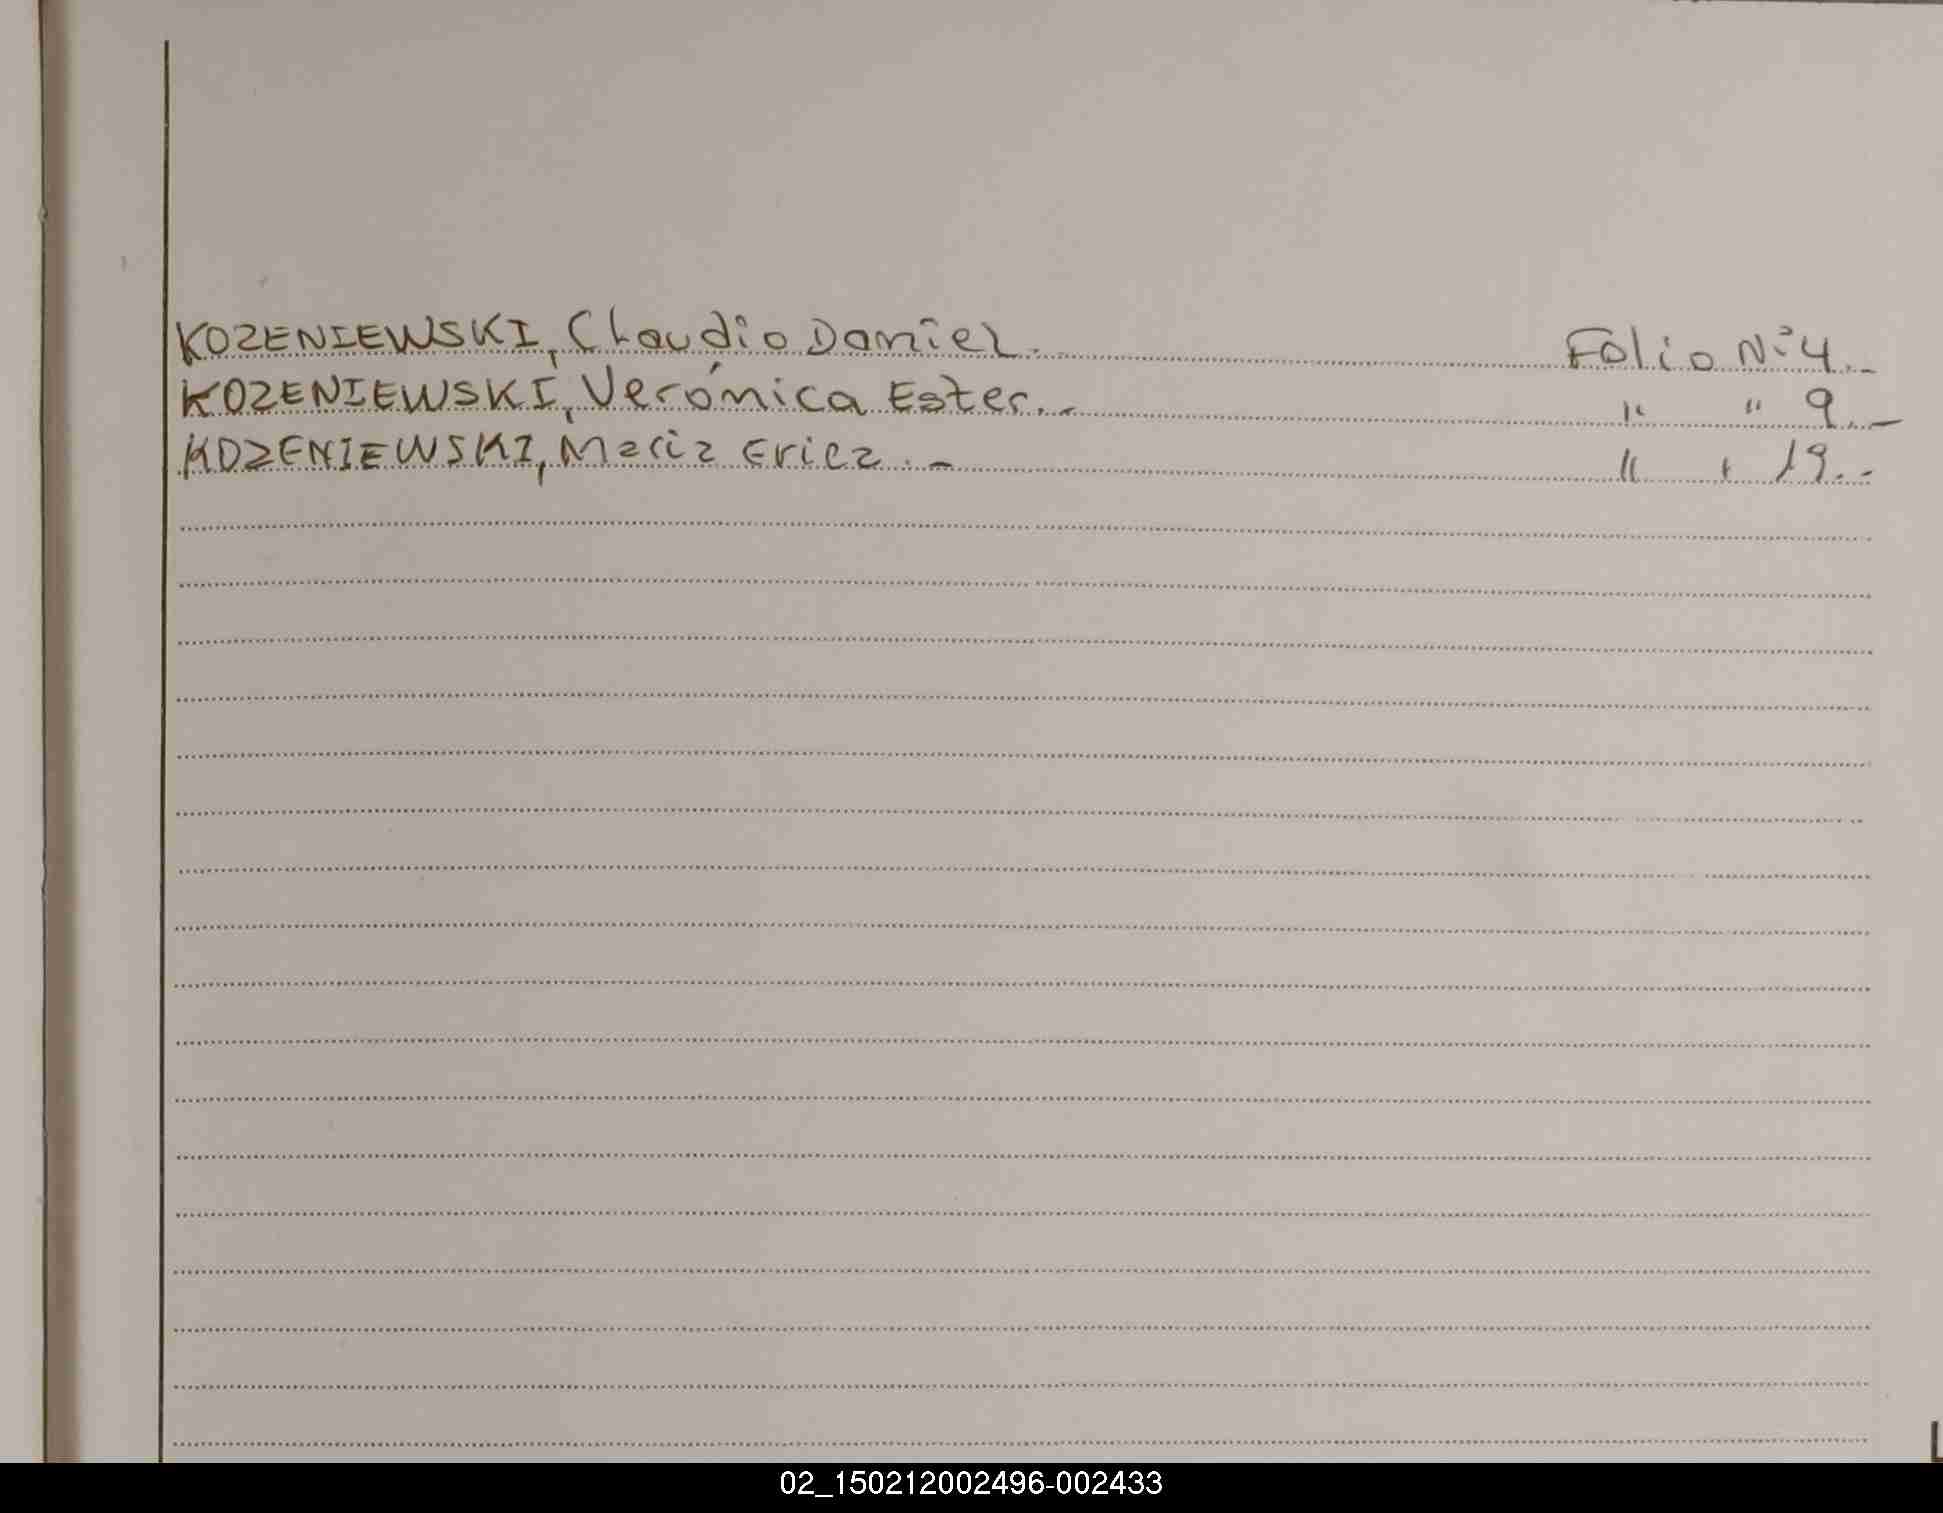 KOZENIEWSKI, Claudio Daniel.- Folio Nº 4.-
KOZENIEWSKI, Verónica Ester.- " " 9.-
KOZENIEWSKI, Maria Erica.- " " 19.-
L
02_150212002496-002433